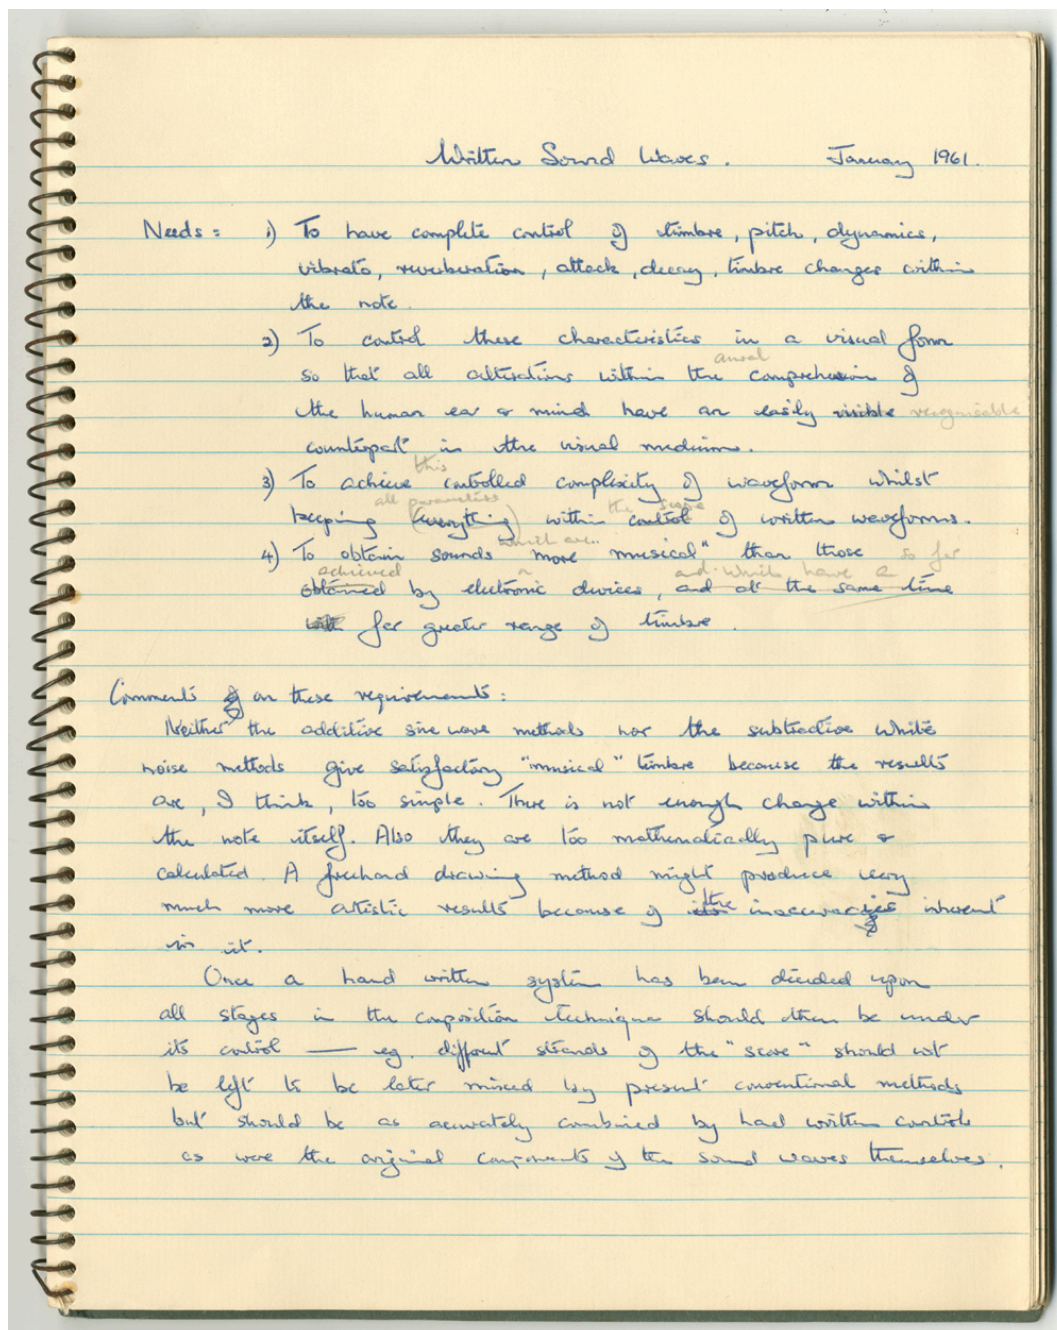 Written Sound Waves. January 1961.
Needs: 1) To have complete control of timbre, pitch, dynamics,
vibrato, reverberation, attack, decay, timbre changes within
the note.
2) To control these characteristics in a visual form
aural
so that all alterations within the comprehension of
the human ear & mind have an easily visible recognisable
counterpart in the visual medium.
this
3) To achieve controlled complexity of waveform whilst
all parameters the scope
keeping (everything) within control of written waveforms.
which are..
4) To obtain sounds "more musical" than those so far
achieved and which have a
obtained by electronic devices, and at the same time
far greater range of timbre.
Comments on these requirements:
Neither the additive sine wave methods nor the subtractive white
noise methods give satisfactory "musical" timbre because the results
are, I think, too simple. There is not enough change within
the note itself. Also they are too mathematically pure &
calculated. A freehand drawing method might produce very
much more artistic results because of the inaccuracies inherent
in it.
Once a hand written system has been decided upon
all stages in the composition technique should then be under
its control — eg. different strands of the "score" should not
be left to be later mixed by present conventional methods
but should be as accurately combined by hand written controls
as were the original components of the sound waves themselves.